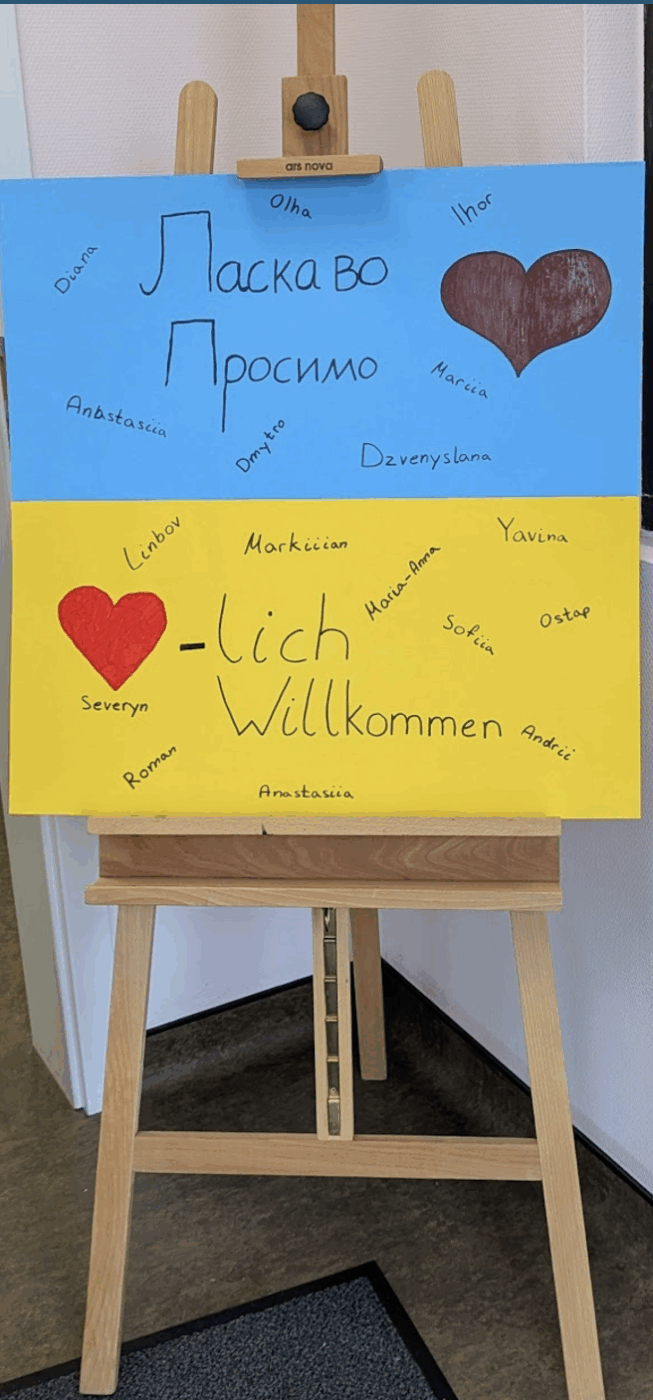 ars nova
Olha
Ihor
Diana
Ласкаво
Просимо
Mariia
Anastasiia
Dmytro
Dzvenyslana
Linbov
Markiiian
Yavina
Maria-Anna
-lich
Sofiia
Ostap
Severyn
Willkommen
Andrii
Roman
Anastasiia